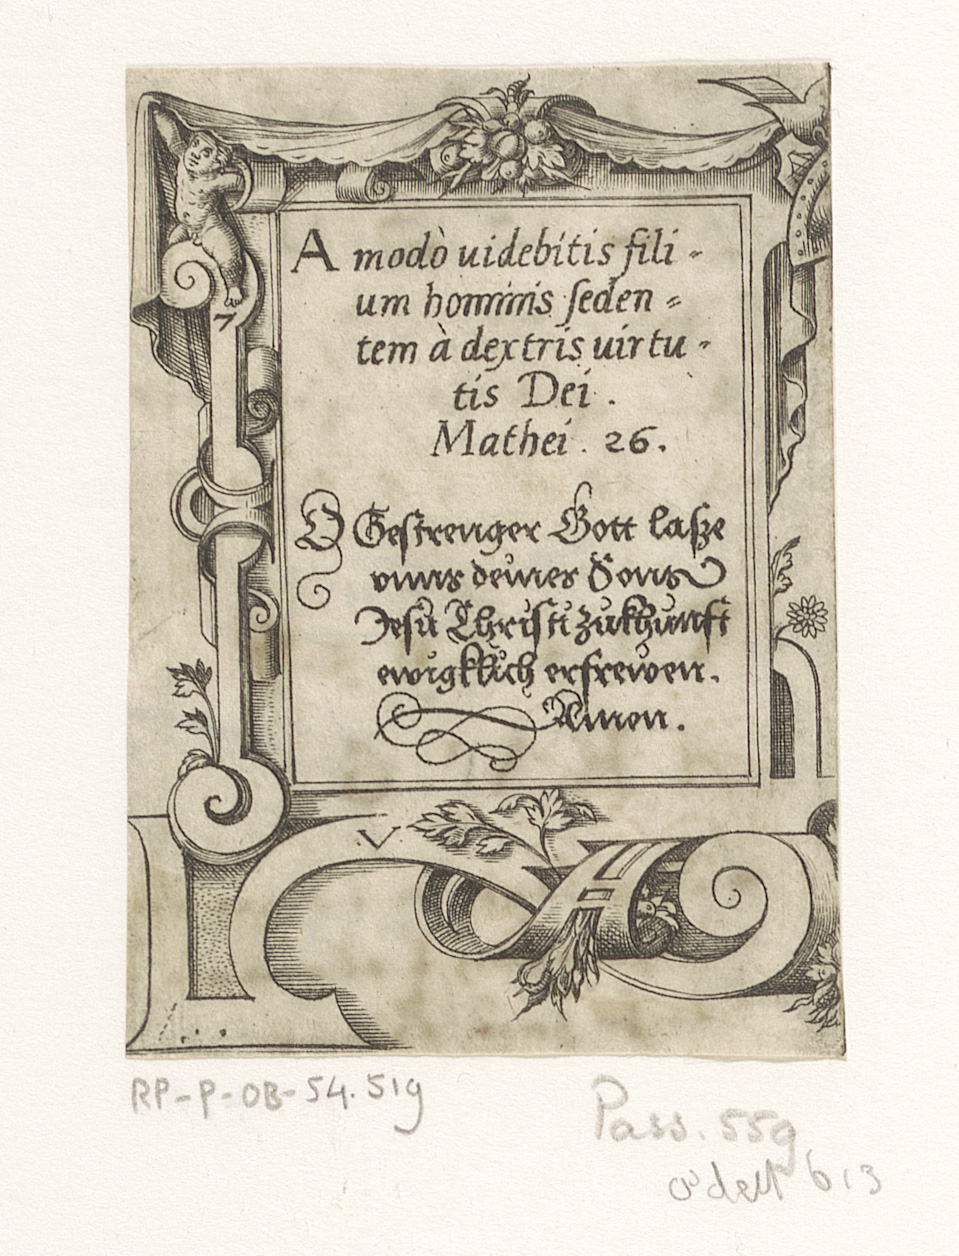 7
A modò uidebitis fili-
um hominis ſeden-
tem à dextris uirtu-
tis Dei.
Mathei. 26.
O Geſtrenger Gott laſze
vnns deines Sons
Jeſu Chriſti zukhunfft
ewigklich erfrewen.
Amen.
V
RP-P-OB-54.519
Pass. 559
odell 613